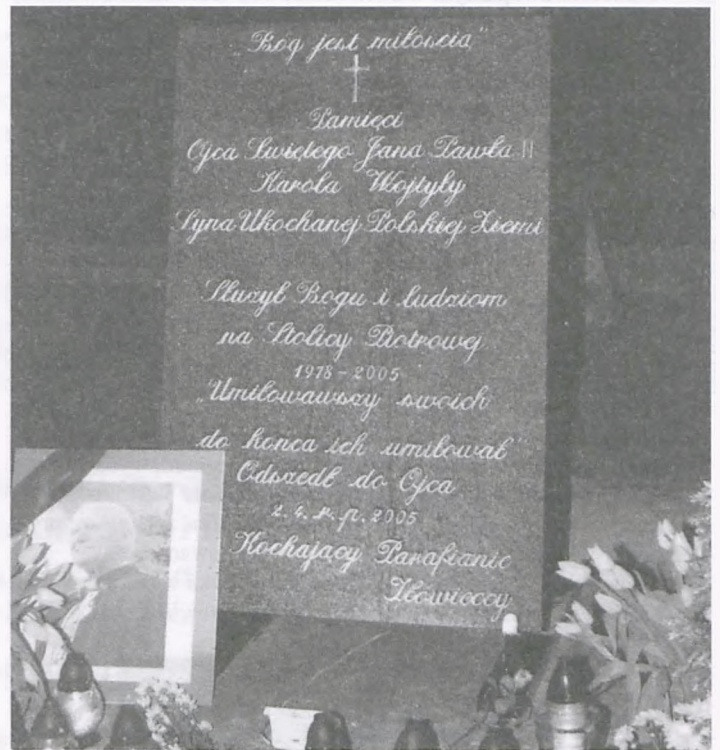 „Bóg jest miłością”
Pamięci
Ojca Świętego Jana Pawła II
Karola Wojtyły
Syna Ukochanej Polskiej Ziemi
Służył Bogu i ludziom
na Stolicy Piotrowej
1978-2005
„Umiłowawszy swoich
do końca ich umiłował”
Odszedł do Ojca
2.4.r.p.2005
Kochający Parafianie
Iłowieccy